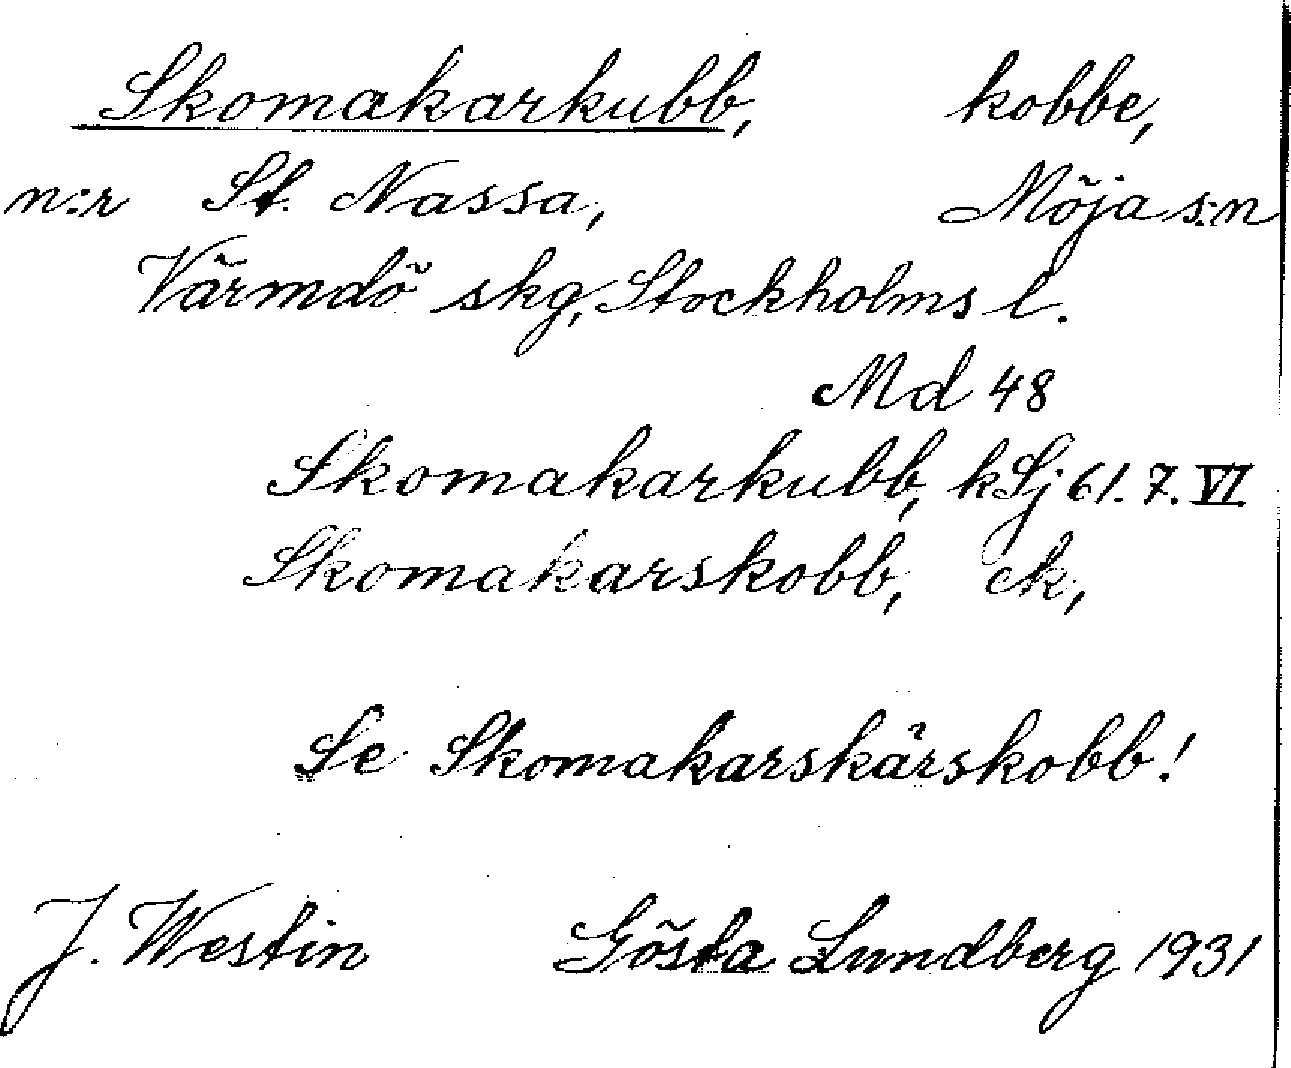 Skomakarkubb, kobbe,
n:r St. Nassa, Möja s:n
Värmdö skg, Stockholms l.
Md 48
Skomakarkubb, kSj 61. 7. VI
Skomakarskobb, ek,
Se Skomakarskärskobb!
J. Westin Gösta Lundberg 1931